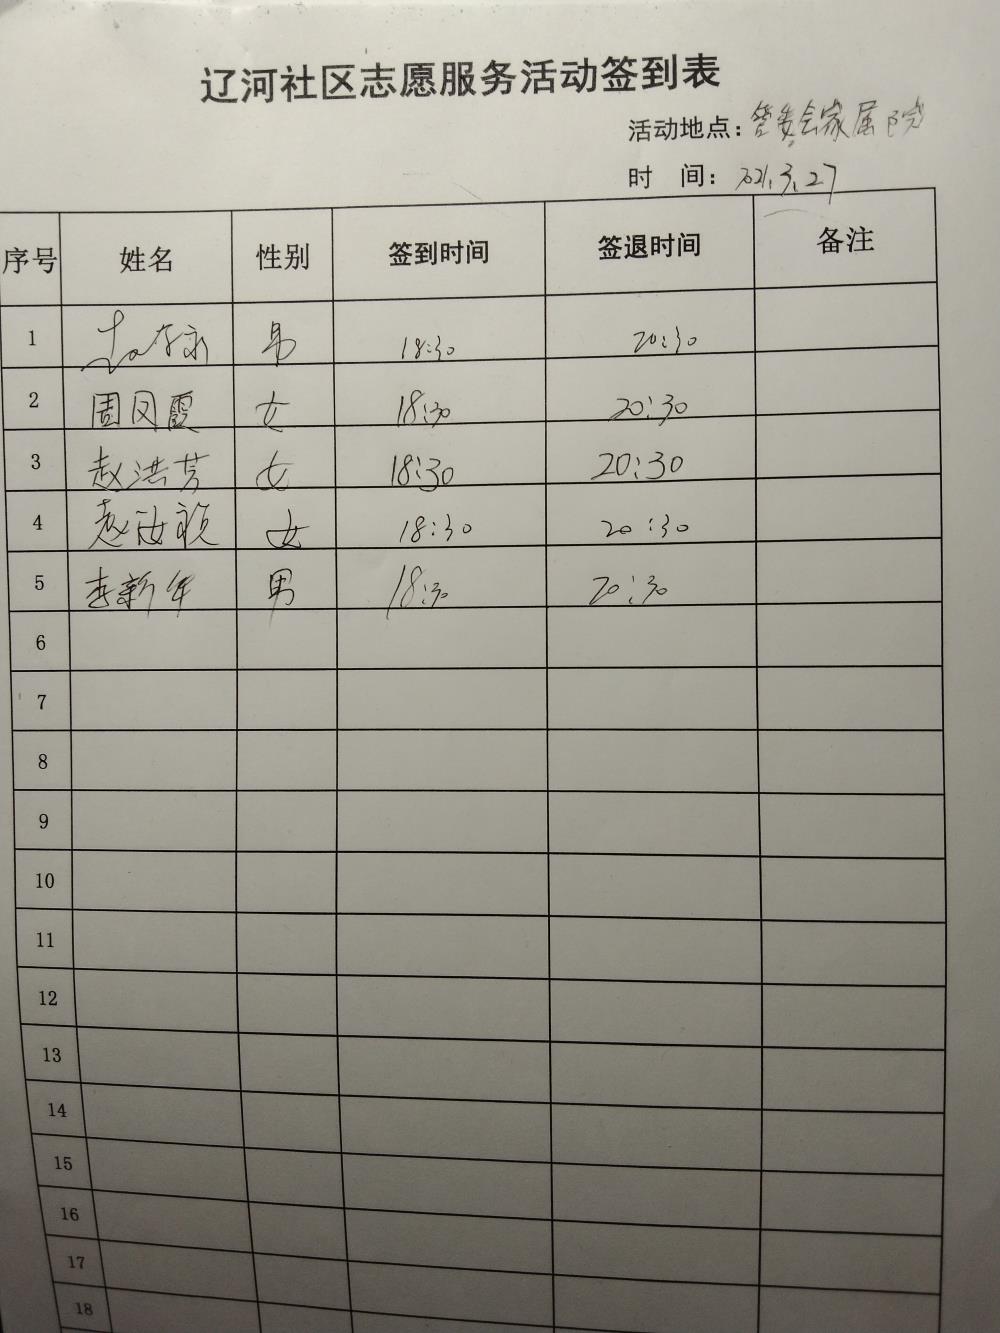 辽河社区志愿服务活动签到表
活动地点：管委会家属院
时 间：2021.3.27
序号 姓名 性别 签到时间 签退时间 备注
1 男 18:30 20:30
2 周凤霞 女 18:30 20:30
3 赵洪芳 女 18:30 20:30
4 赵 女 18:30 20:30
5 李新年 男 18:30 20:30
6
7
8
9
10
11
12
13
14
15
16
17
18